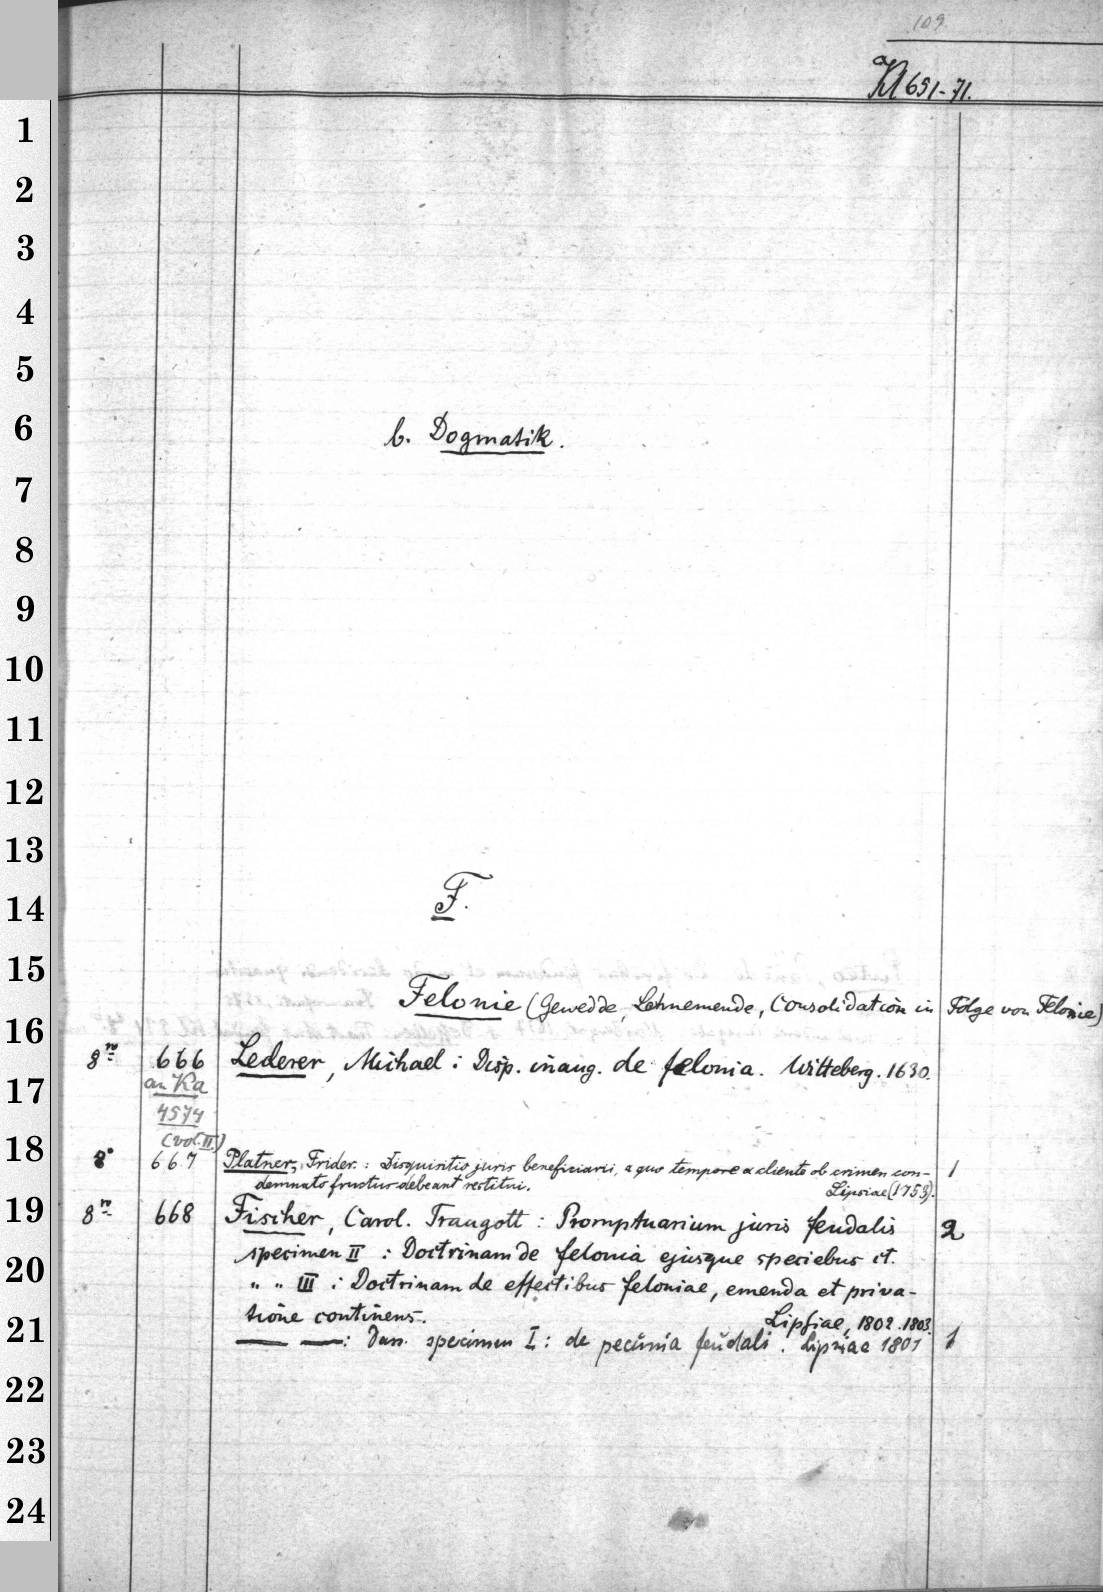 109.
Kl 651-71.
1
2
3
4
5
6
b. Dogmatik.
7
8
9
10
11
12
13
14
F.
15
Felonie (Gewedde, Lehnemende, Consolidation in Folge von Felonie)
16
8ro 666 Lederer, Michael: Disp. inaug. de felonia. Witteberg. 1630.
17
an Ka
4574
(vol. II)
18
8° 667 Platner, Frider.: Disquisitio juris beneficiarii, a quo tempore a cliente ob crimen con- 1
demnato fructus debeant restitui. Lipsiae (1753).
19
8ro 668 Fischer, Carol. Traugott: Promptuarium juris feudalis 2
specimen II: Doctrinam de felonia ejusque speciebus et.
20
" " III: Doctrinam de effectibus feloniae, emenda et priva-
tione continens. Lipsiae, 1802. 1803.
21
— —: Dass. specimen I: de pecunia feudali. Lipsiae 1801 1
22
23
24